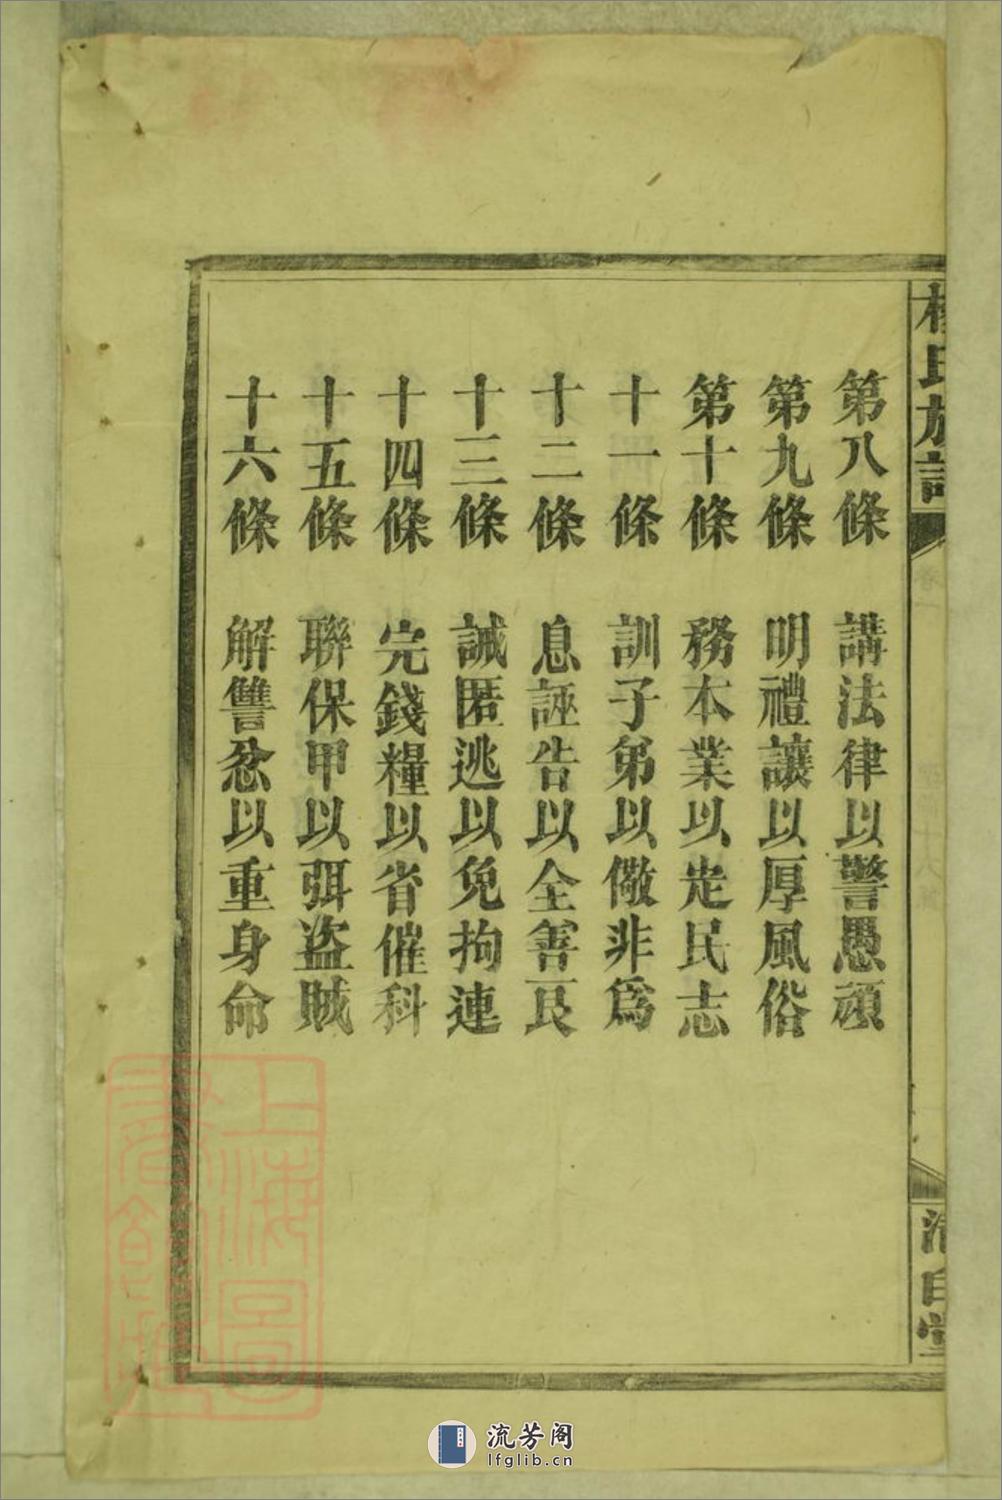 楊氏族譜
清白堂
第八條　講法律以警愚頑
第九條　明禮讓以厚風俗
第十條　務本業以定民志
十一條　訓子弟以儆非爲
十二條　息誣告以全善良
十三條　誡匿逃以免拘連
十四條　完錢糧以省催科
十五條　聯保甲以弭盗賊
十六條　解讐忿以重身命
上海圖書館藏
流芳阁
lfglib.cn